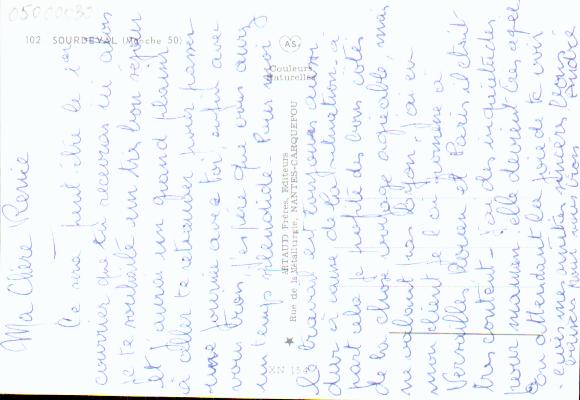 05000030
102 SOURDEVAL (Manche 50)
AS
Couleurs
Naturelles
ARTAUD Frères, Editeurs
Rue de la Métallurgie, NANTES-CARQUEFOU
XN 154
Ma Chère Renée
Ce sera peut-être le 1er
courrier que tu recevras ici alors
je te souhaite un très bon séjour
et j'aurai un grand plaisir
à aller te retrouver pour passer
une journée avec toi, enfin avec
vous trois j'espère que vous aurez
un temps splendide - Pour moi
le travail est toujours aussi
dur à cause de la à
part cela je profite des bons côtés
de la chose voyage agréable, mais
ne valant pas Layon, j'ai eu
mon client je l'ai promené à
Versailles, et Paris il était
très content - j'ai des inquiétudes
pour maman, elle devient très âgée
En attendant la joie de te voir
mes sincères
pour vous trois
André